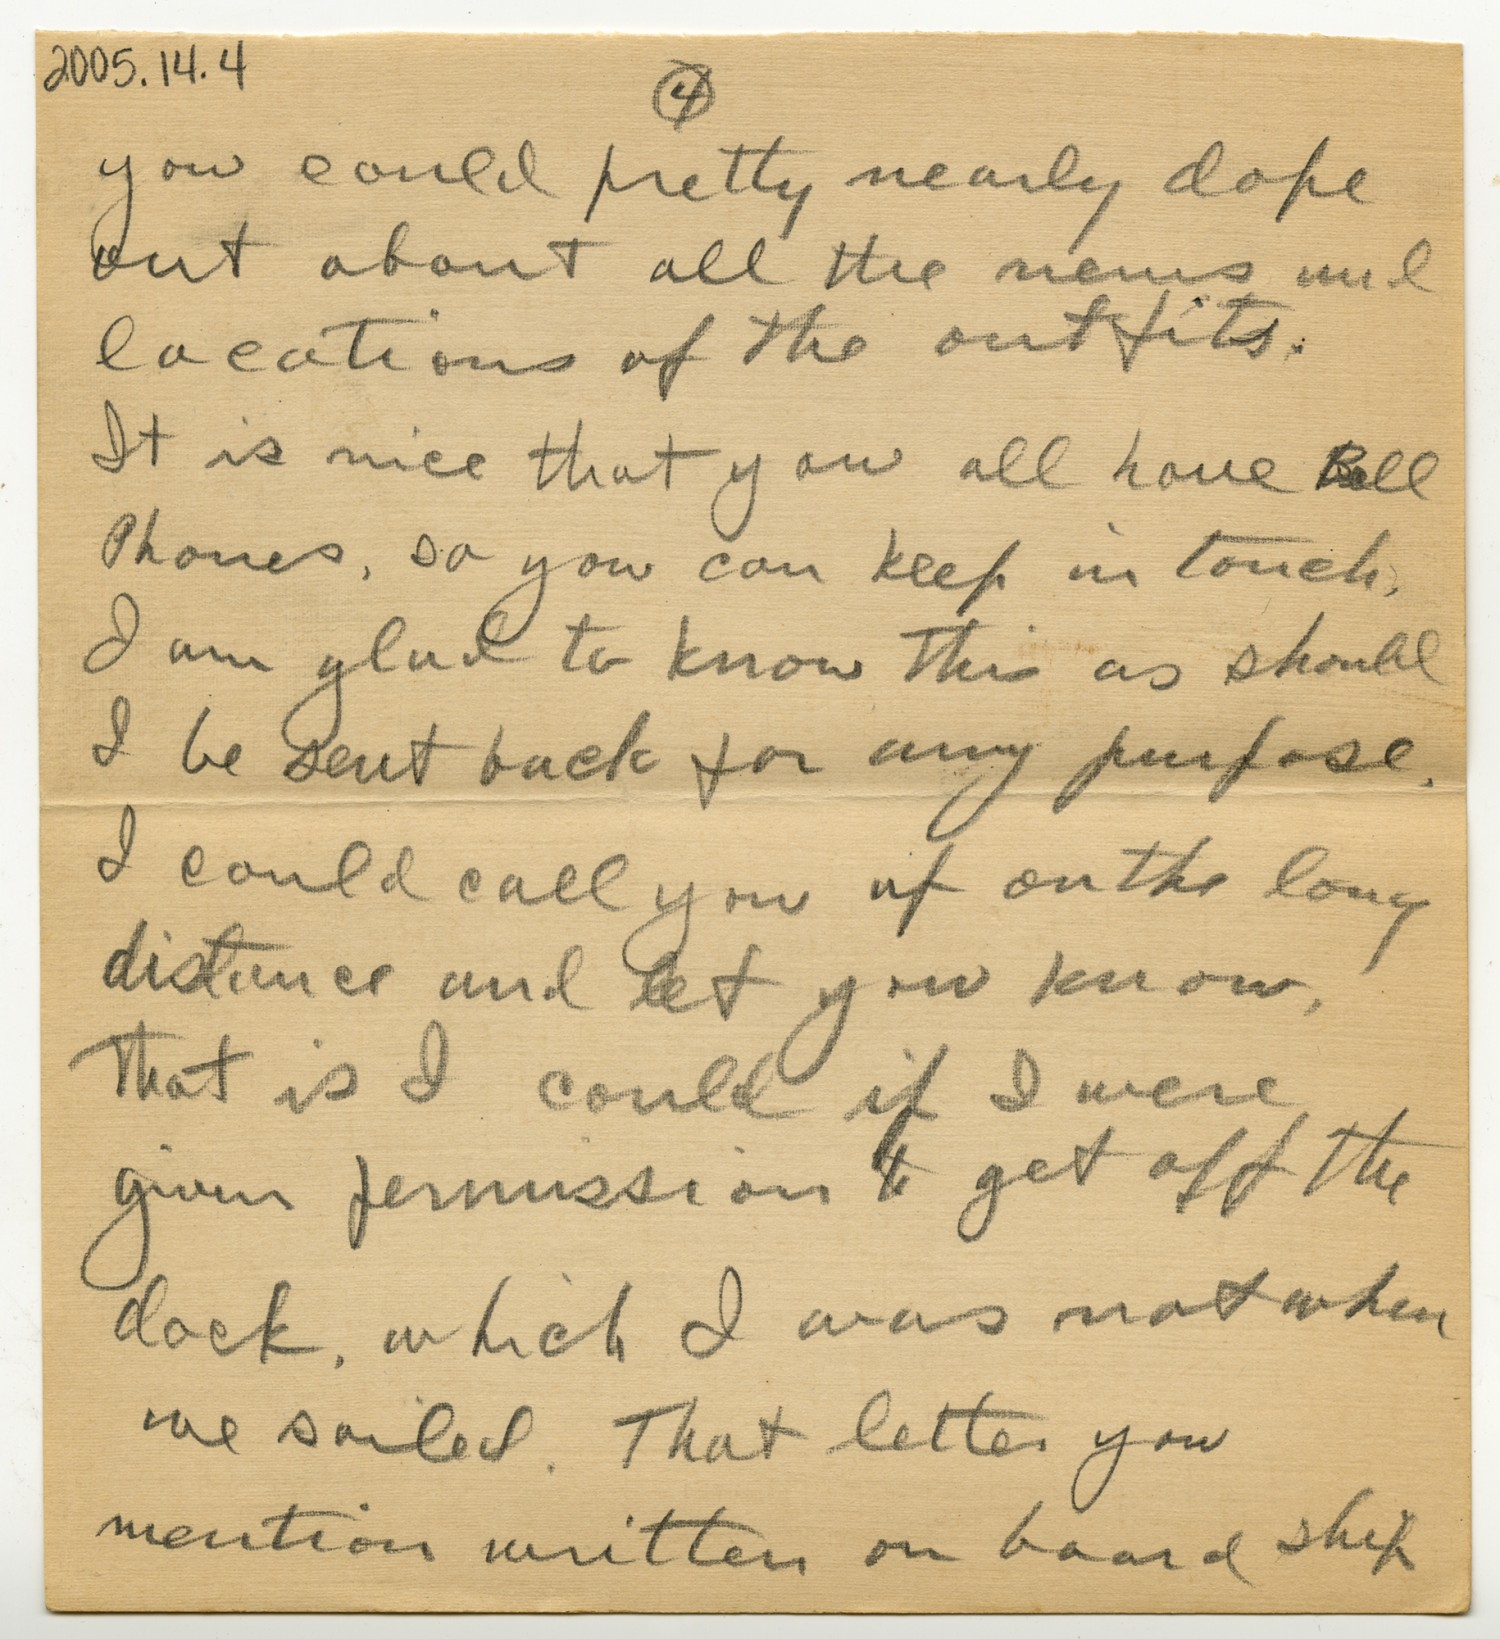 2005.14.4
4
you could pretty nearly dope
out about all the news and
locations of the outfits.
It is nice that you all have Bell
Phones, so you can keep in touch.
I am glad to know this as should
I be sent back for any purpose.
I could call you up on the long
distance and let you know.
That is I could if I were
given permission to get off the
dock, which I was not when
we sailed. That letter you
mention written on board ship